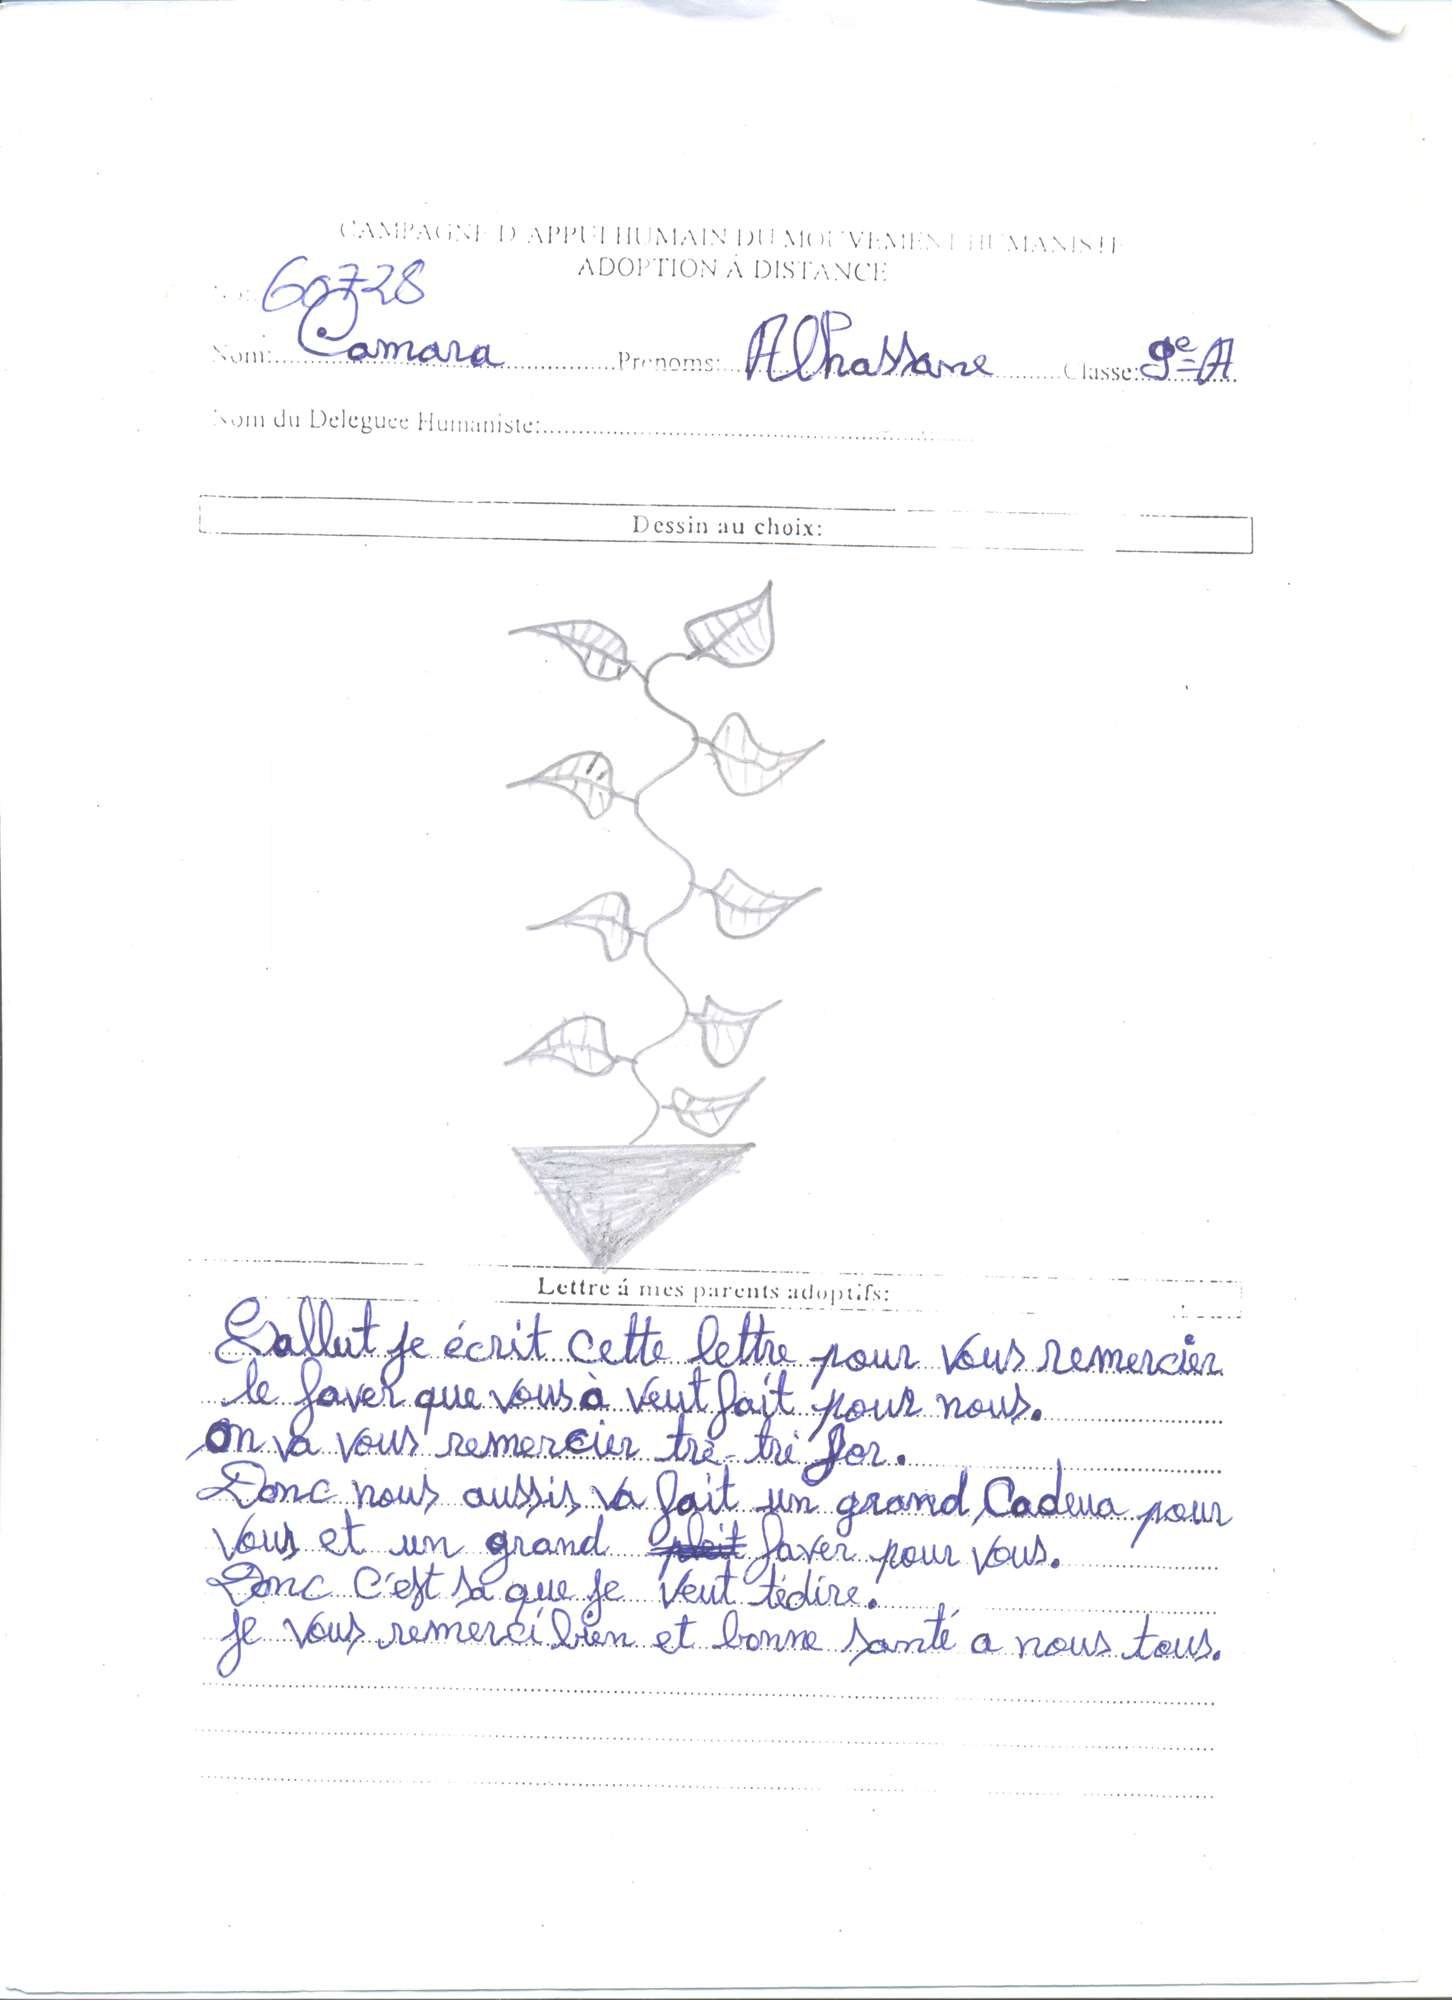 CAMPAGNE D'APPUI HUMAIN DU MOUVEMENT HUMANISTE
ADOPTION Á DISTANCE
60728
Nom: Camara Prenoms: Alhassane Classe: 9e A
Nom du Deleguee Humaniste:
Dessin au choix:
Lettre á mes parents adoptifs:
Sallut je écrit cette lettre pour vous remercier
le faver que vous à veut fait pour nous.
On va vous remercier trè-trè for.
Donc nous aussis va fait un grand Cadeua pour
vous et un grand faver pour vous.
Donc C'est sa que je veut tèdire.
je vous remerci bien et bonne santé a nous tous.